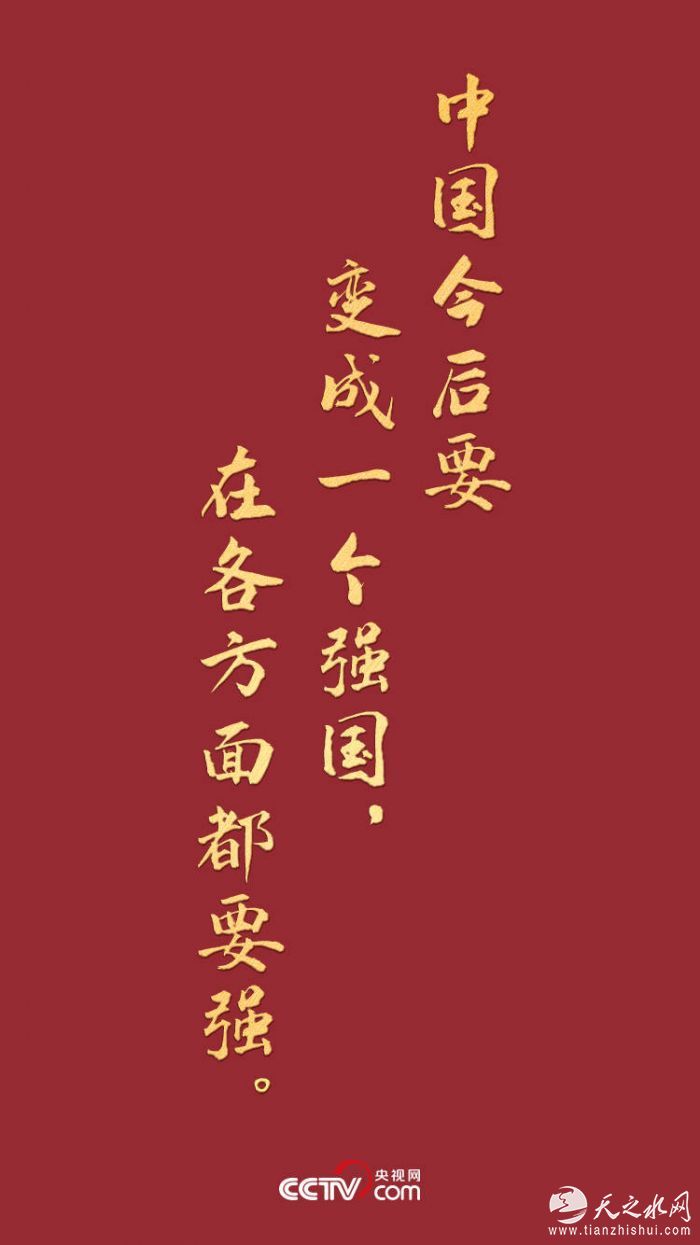 中国今后要
变成一个强国，
在各方面都要强。
CCTV 央视网
com
天之水网
www.tianzhishui.com